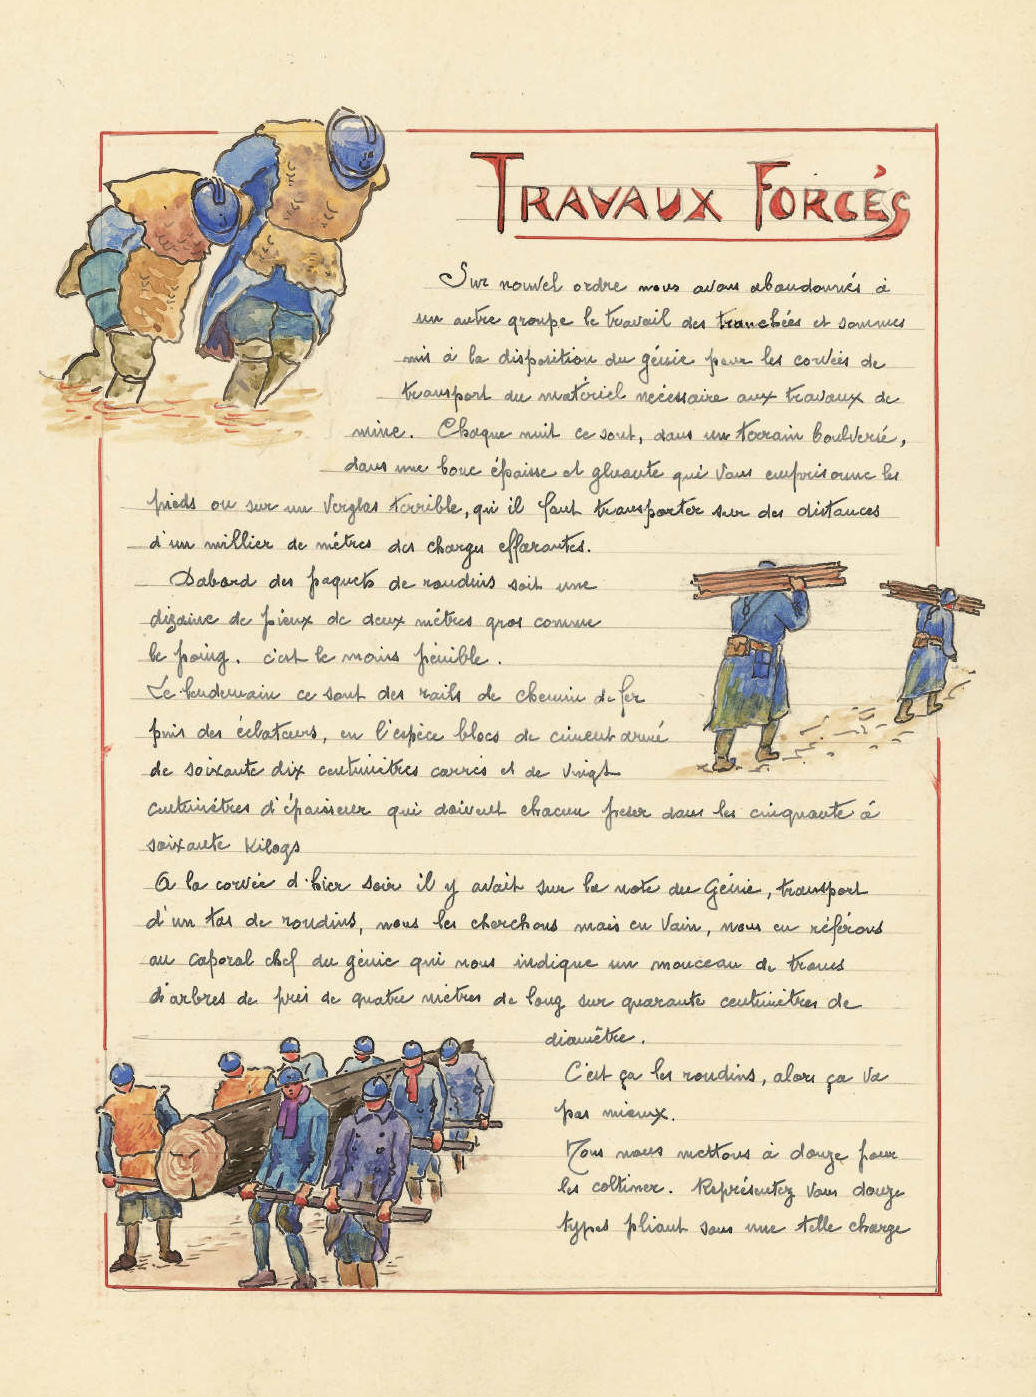 TRAVAUX FORCÉS
Sur nouvel ordre nous avons abandonnés à
un autre groupe le travail des tranchées et sommes
mis à la disposition du génie pour les corvées de
transport du matériel nécessaire aux travaux de
mine. Chaque nuit ce sont, dans un terrain boulversé,
dans une boue épaisse et gluante qui vous emprisonne les
pieds ou sur un verglas terrible, qu'il faut transporter sur des distances
d'un millier de mètres des charges effarantes.
Dabord des paquets de rondins soit une
dizaine de pieux de deux mètres gros comme
le poing. c'est le moins pénible.
Le lendemain ce sont des rails de chemin de fer
puis des éclateurs, en l'espèce blocs de ciment armé
de soixante dix centimètres carrés et de vingt
centimètres d'épaisseur qui doivent chacun peser dans les cinquante à
soixante Kilogs
A la corvée d'hier soir il y avait sur la note du Génie, transport
d'un tas de rondins, nous les cherchons mais en vain, nous en référons
au caporal chef du génie qui nous indique un monceau de troncs
d'arbres de près de quatre mètres de long sur quarante centimètres de
diamêtre.
C'est ça les rondins, alors ça va
pas mieux.
Nous nous mettons à douze pour
les coltiner. Représentez vous douze
types pliant sous une telle charge